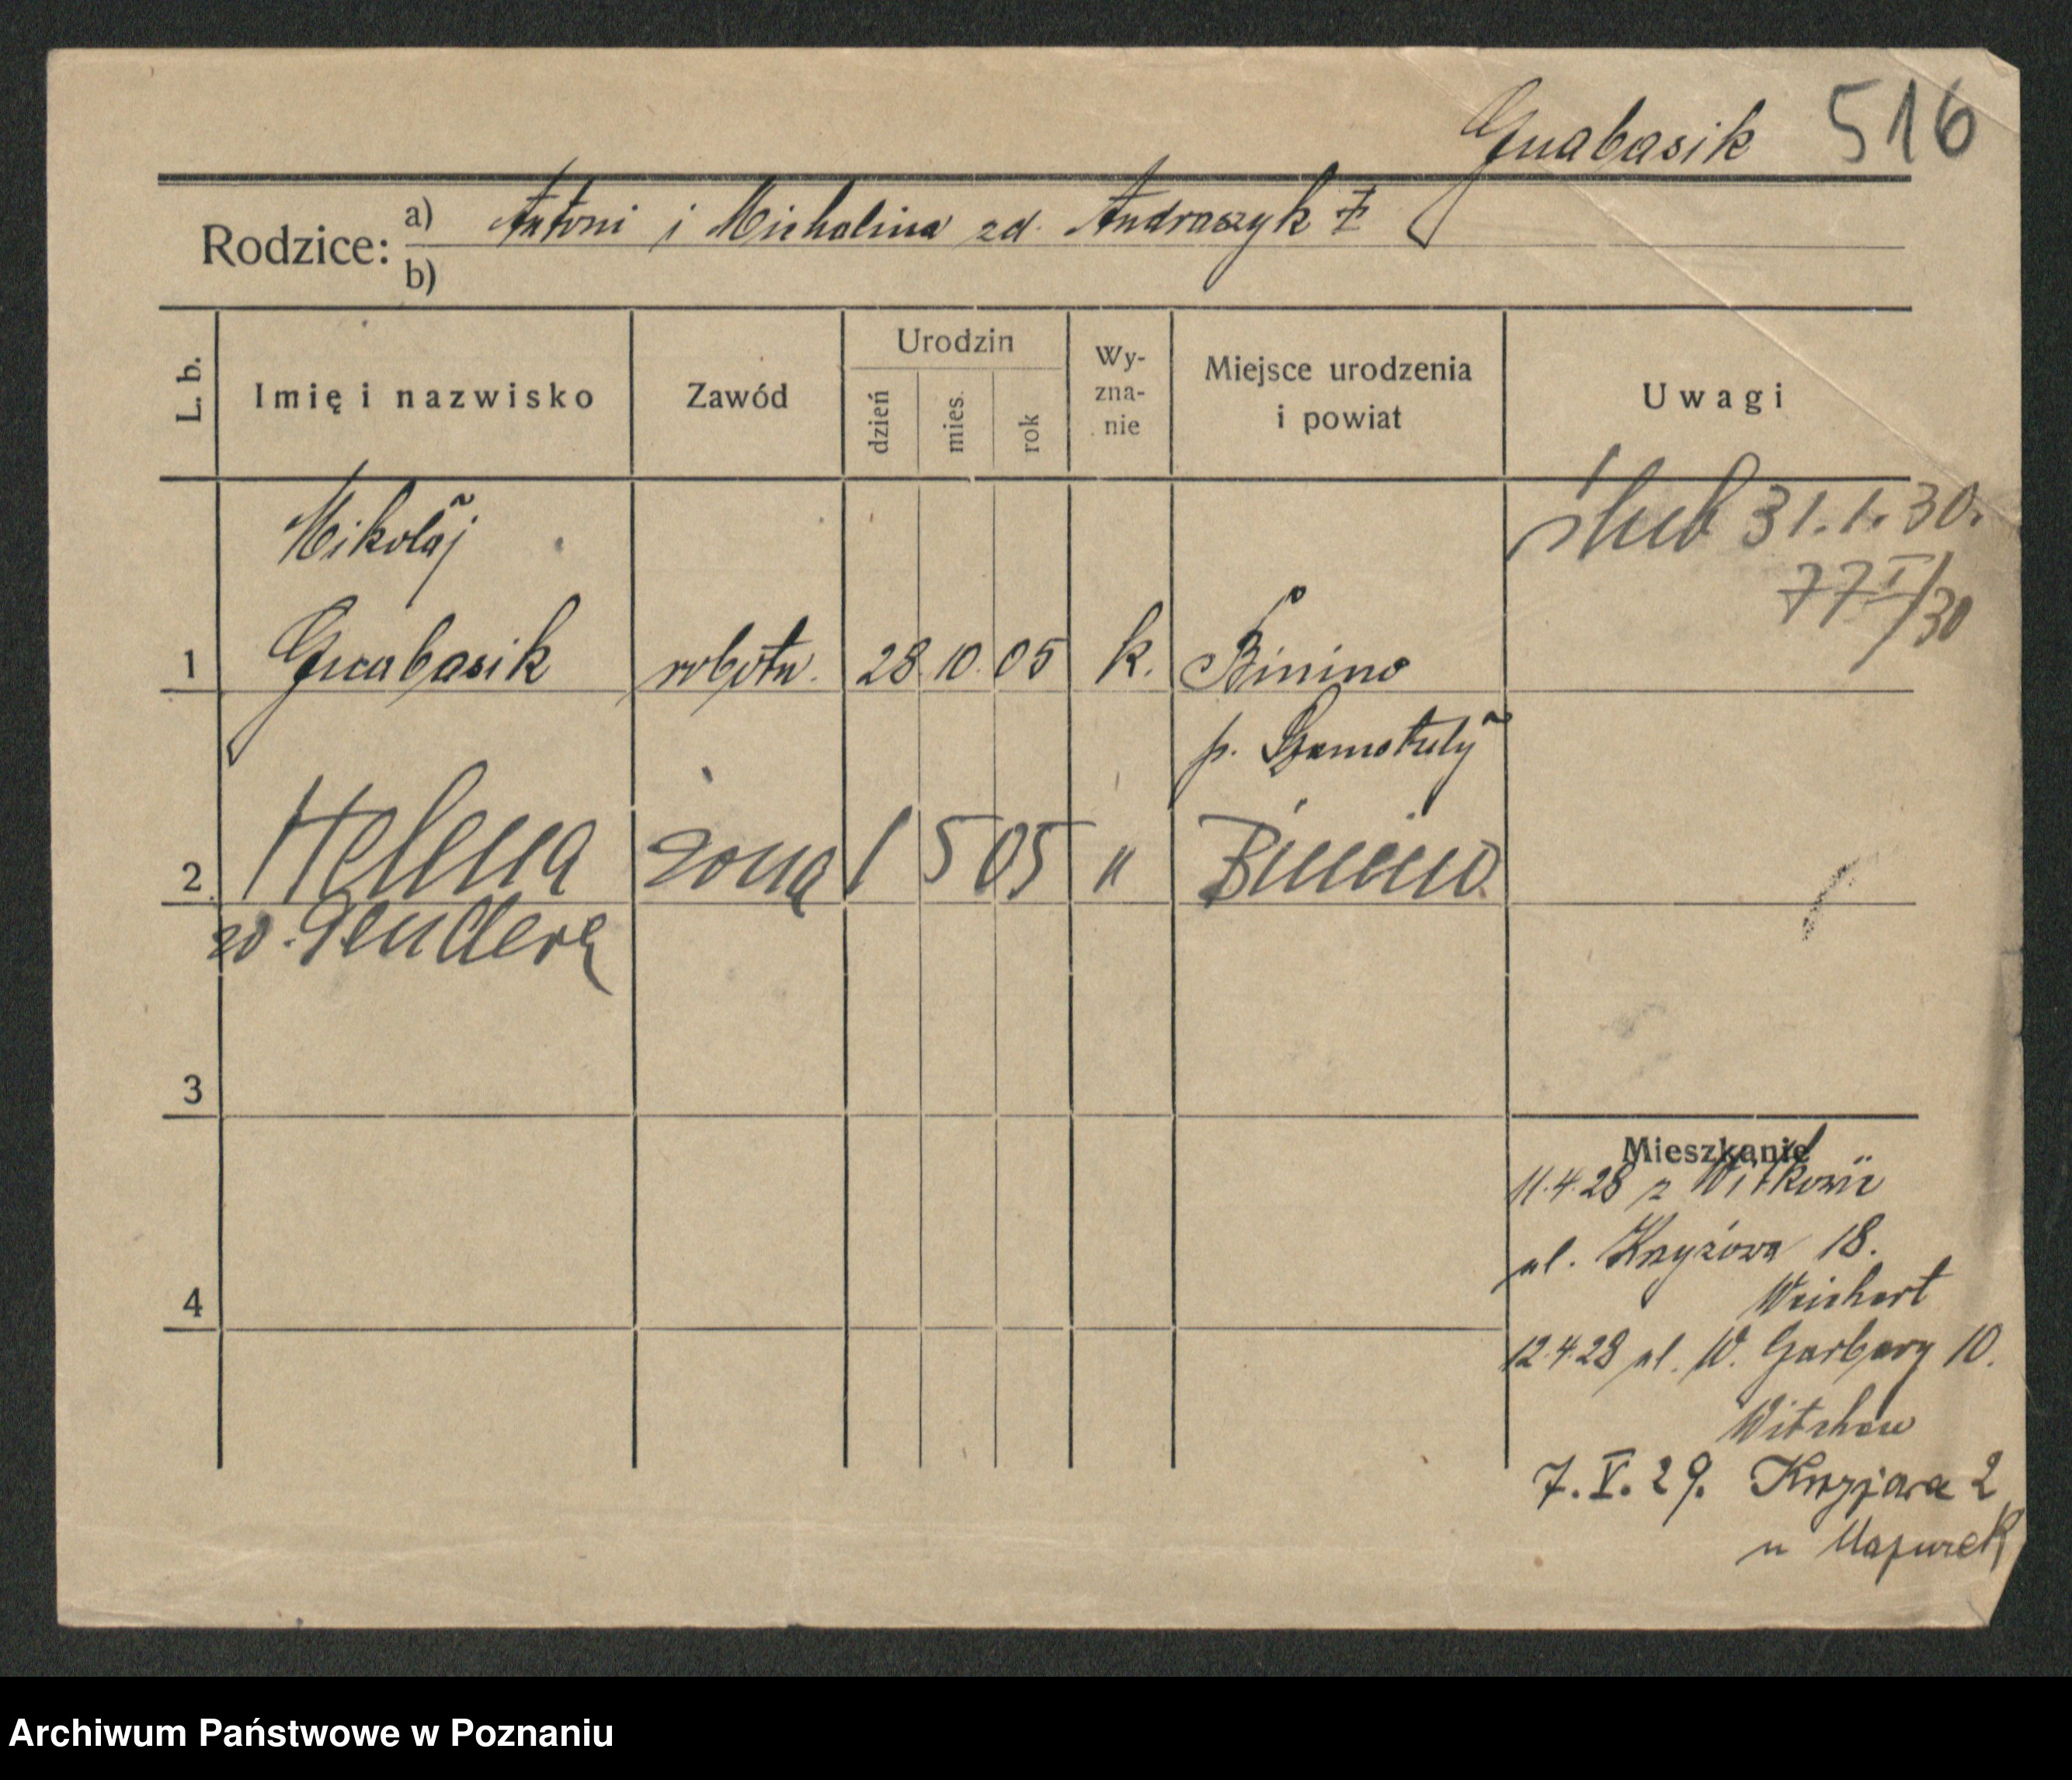 Gnabasik 516
Rodzice: a) Antoni i Michalina zd. Andraszyk
b)
L. b. Imię i nazwisko Zawód Urodzin dzień mies. rok Wy-zna-nie Miejsce urodzenia i powiat Uwagi
Mikołaj ślub 31.1.30.
77 I/30
1 Gnabasik robotn. 28. 10. 05 k. Binino
p. Szamotuły
2 Helena żona 1 5 05 " Binino
3
Mieszkanie
11.4.28 z
ul. Krzyżowa 18.
4 Weichert
12.4.28 ul. W. Garbary 10.
7. V. 29. 2
u
Archiwum Państwowe w Poznaniu